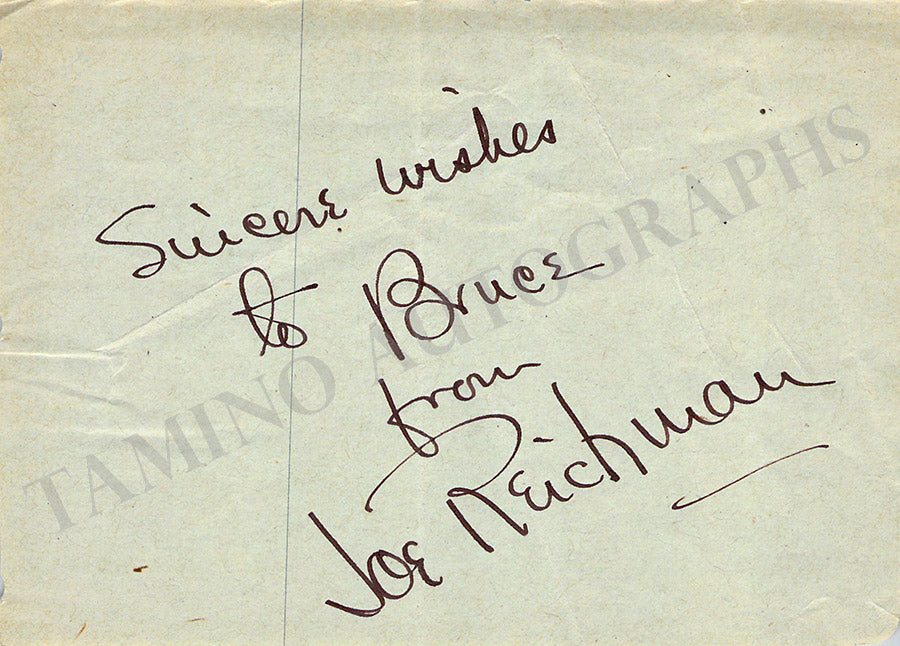 Sincere wishes
to Bruce
from
Joe Reichman
TAMINO AUTOGRAPHS